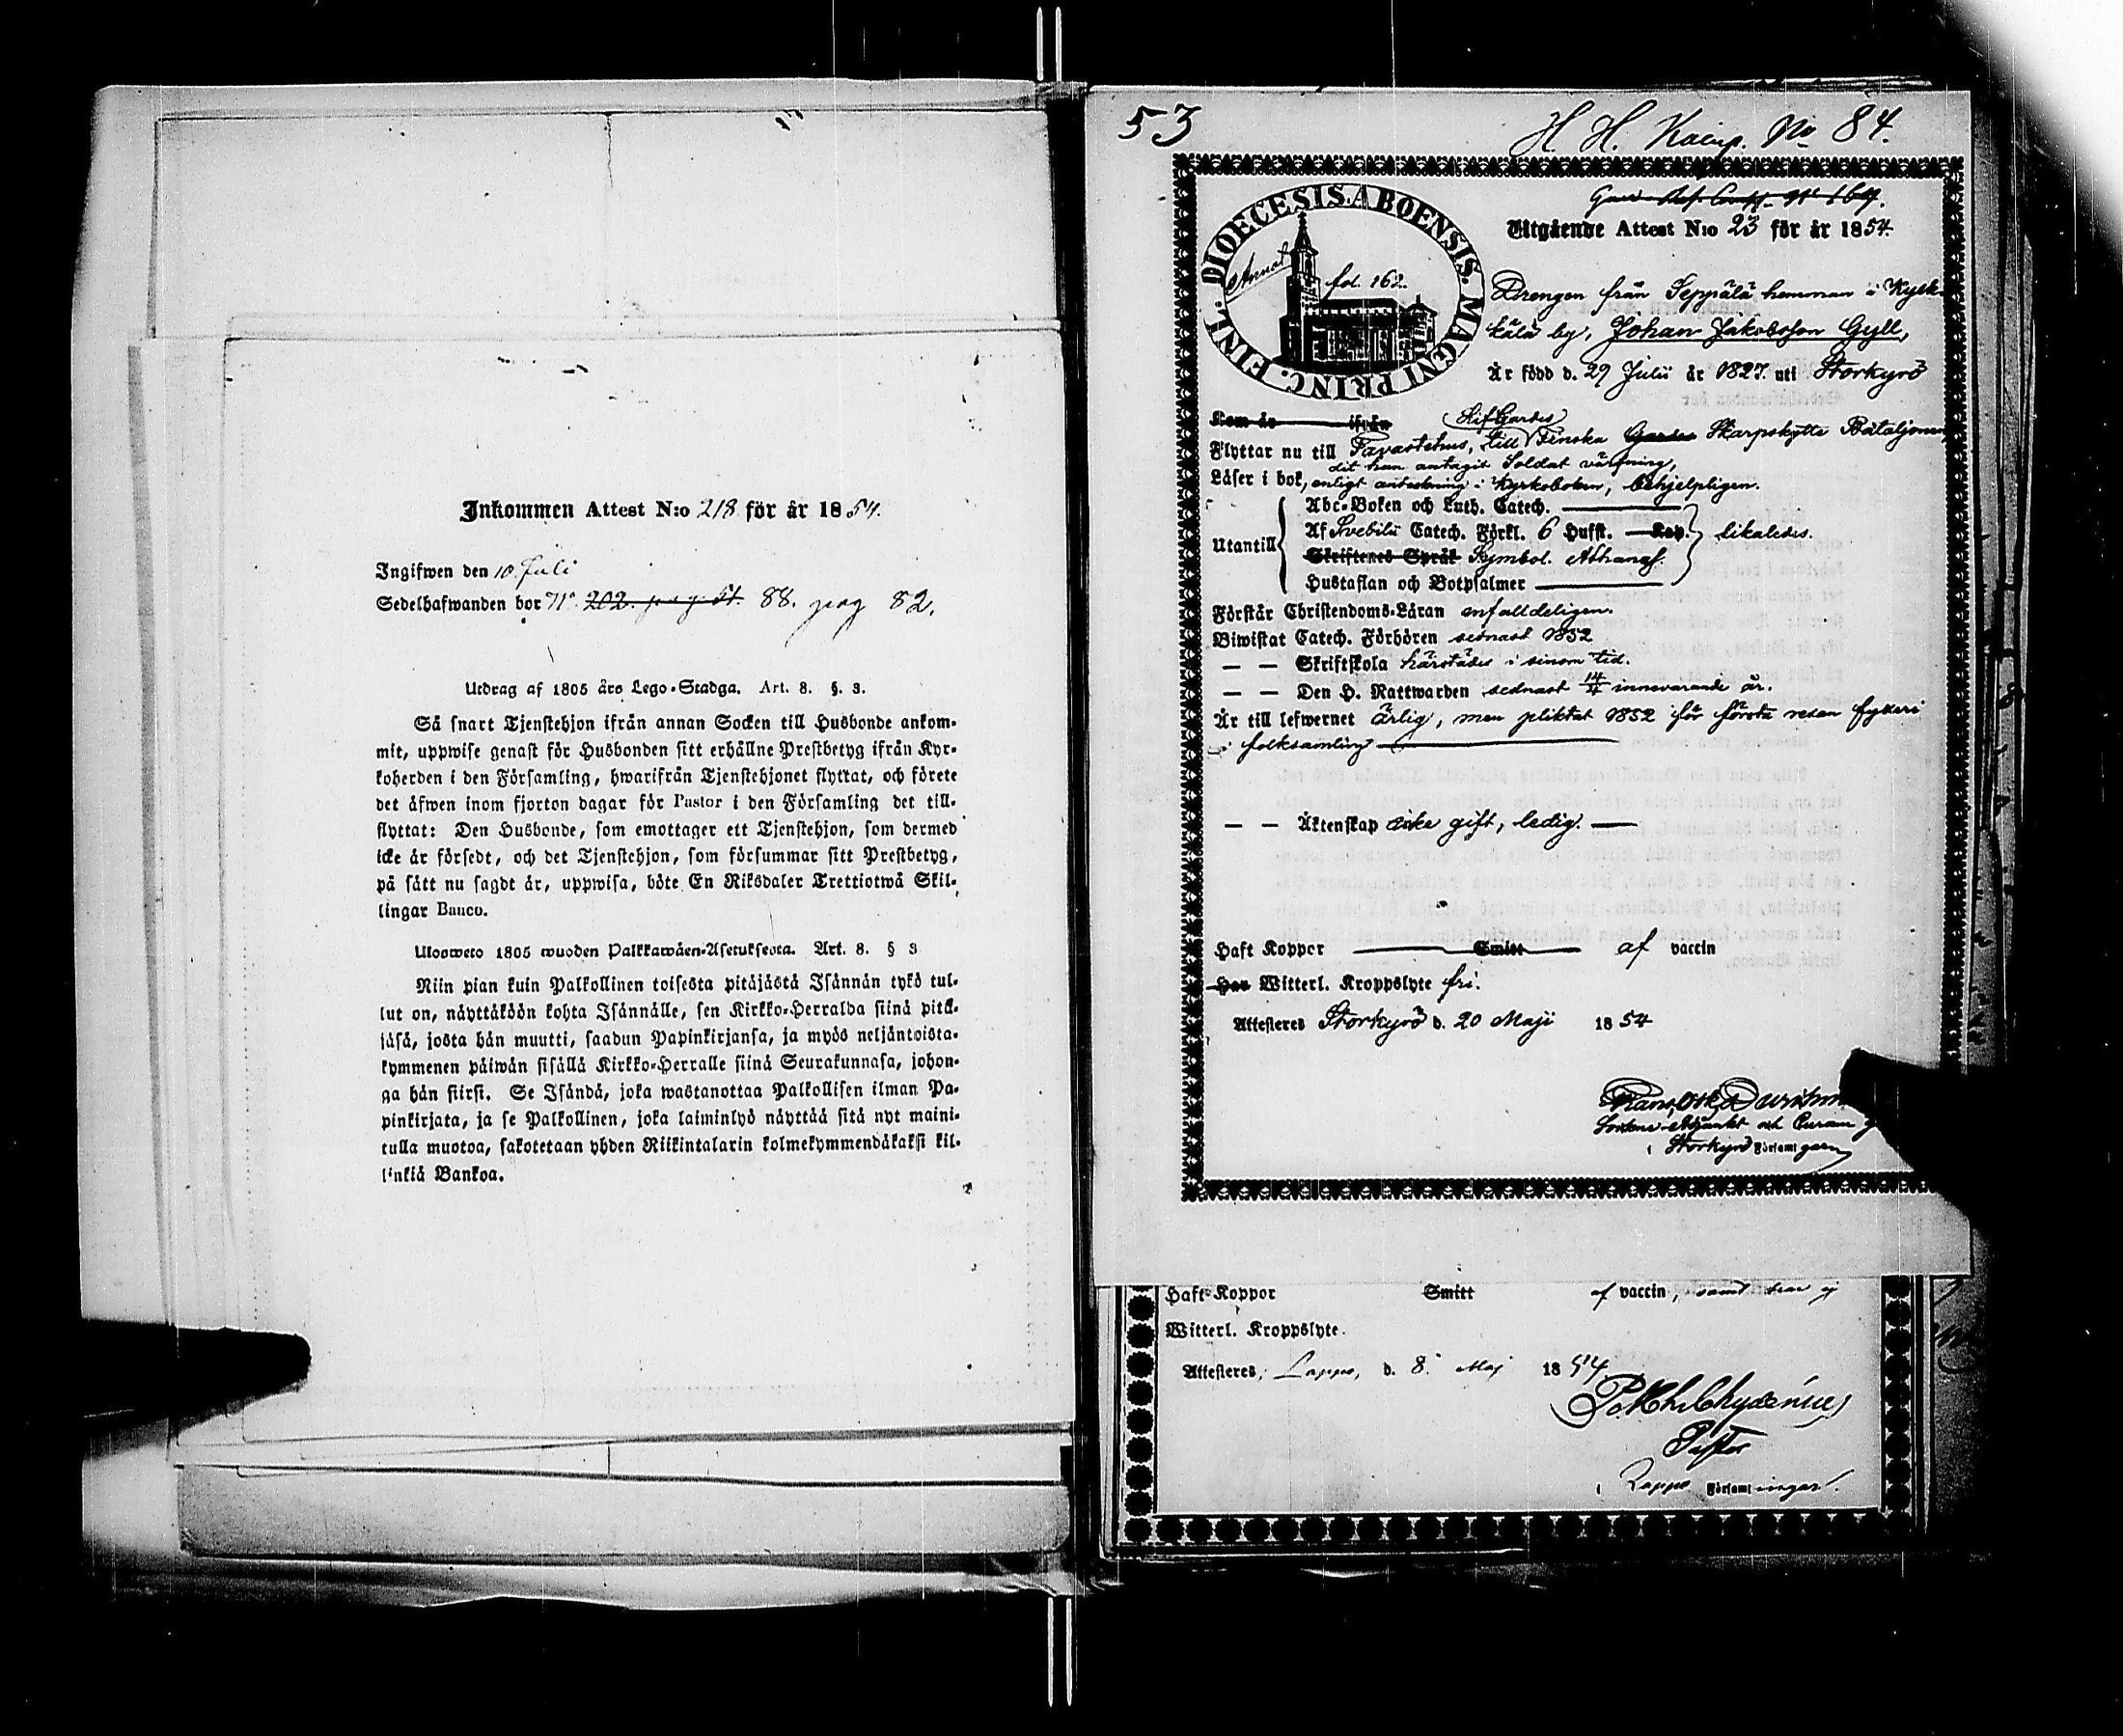 Inkommen Attest N:o 218 för år 1854.
Ingifwen den 10. Juli
Sedelhafwanden bor 88. pag 82.
Utdrag af 1805 års Lego-Stadga. Art. 8. §. 3.
Så snart Tjenstehjon ifrån annan Socken till Husbonde ankom-
mit, uppwise genast för Husbonden sitt erhållne Prestbetyg ifrån Kyr-
koherden i den Församling, hwarifrån Tjenstehjonet flyttat, och förete
det äfwen inom fjorton dagar för Pastor i den Församling det till-
flyttat: Den Husbonde, som emottager ett Tjenstehjon, som dermed
icke är försedt, och det Tjenstehjon, som försummar sitt Prestbetyg,
på sätt nu sagdt är, uppwisa, böte En Riksdaler Trettiotwå Skil-
lingar Banco.
Ulosweto 1805 wuoden Palkkawäen-Asetuksesta. Art. 8. § 3
Niin pian kuin Palkollinen toisesta pitäjästä Isännän tykö tul-
lut on, näyttäköön kohta Isännälle, sen Kirkko-Herralda siinä pitä-
jäsä, josta hän muutti, saadun Papinkirjansa, ja myös neljäntoista-
kymmenen päiwän sisällä Kirkko-Herralle siinä Seurakunnasa, johon-
ga hän siirsi. Se Isändä, joka wastanottaa Palkollisen ilman Pa-
pinkirjata, ja se Palkollinen, joka laiminlyö näyttää sitä nyt maini-
tulla muotoa, sakotetaan yhden Riikintalarin kolmekymmendäkaksi kil-
linkiä Bankoa.
53
H. H. Kaup. No 84.
DIOECESIS ABOENSIS. MAGNI PRINC. FINL.
Annot
fol. 162.
Utgående Attest N:o 23 för år 1854.
Drengen från Seppälä hemman i Kyrk-
kälä by, Johan Jakobsson Gyll,
Är född d. 29 Julii år 1827. uti Storkyrö
Kom år ifrån
Flyttar nu till Tavastehus, till Finska Gardes Skarpskytte Bataljonen
dit han antagit Soldat värfning,
Läser i bok, enligt anteckning i Kyrkoboken, behjelpligen.
Utantill
Abc-Boken och Luth. Catech.
Af Svebilii Catech. Förkl. 6 Hufst. likaledes.
Skriftenes Språk Symbol. Athanas.
Hustaflan och Botpsalmer
Förstår Christendoms-Läran enfalldeligen.
Biwistat Catech. Förhören sednast 1852
— — Skriftskola härstädes i sinom tid.
— — Den H. Nattwarden sednast 14/4 innevarande år.
Är till lefwernet ärlig, men pliktat 1852 för första resan fylleri
i folksamling
— — Äktenskap icke gift, ledig.
Haft Koppor Smitt af vaccin
Har Witterl. Kroppslyte fri.
Attesteras Storkyrö d. 20 Maji 1854
Sockne-Adjunkt och Curam
i Storkyrö Församl
Haft Koppor Smitt af vaccin, samt har ej
Witterl. Kroppslyte.
Attesteras, Lappo, d. 8. Maj 1854
Pastor
i Lappo Församlingar.